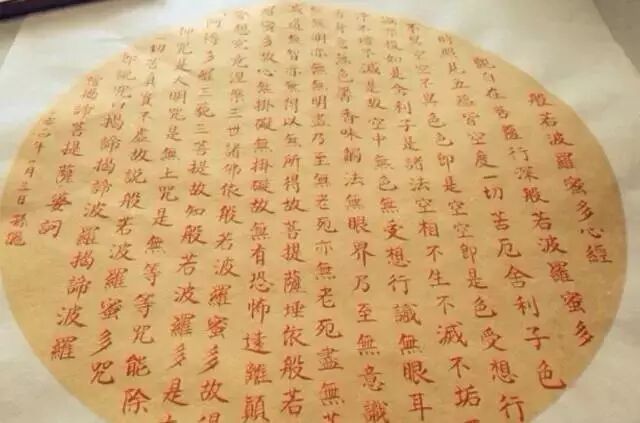 般若波羅蜜多心經
觀自在菩薩行深般若波羅蜜多
時照見五蘊皆空度一切苦厄舍利子色
不異空空不異色色即是空空即是色受想行
復如是舍利子是諸法空相不生不滅不垢
淨不增不減是故空中無色無受想行識無眼耳
身意無色聲香味觸法無眼界乃至無意識
無明亦無無明盡乃至無老死亦無老死盡無
道無智亦無得以無所得故菩提薩埵依般若
蜜多故心無掛礙無掛礙故無有恐怖遠離顛
夢想究竟涅槃三世諸佛依般若波羅蜜多故得
阿耨多羅三藐三菩提故知般若波羅蜜多是
咒是大明咒是無上咒是無等等咒能除
一切苦真實不虛故說般若波羅蜜多咒
即說咒曰揭諦揭諦波羅揭諦波羅
僧揭諦菩提薩婆訶